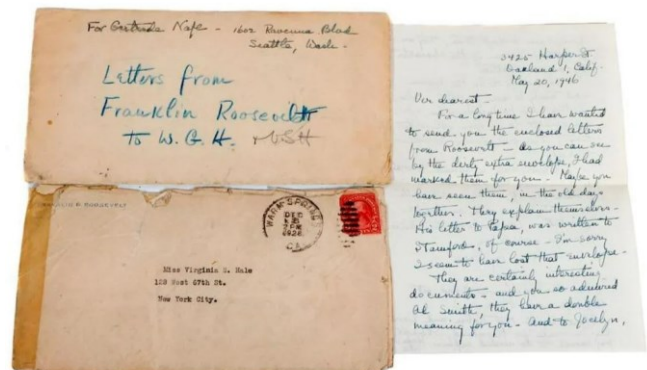 For Gertrude Nafe - 1602 Ravenna Blvd
Seattle, Wash -
Letters from
Franklin Roosevelt
To W. G. H.
FRANKLIN D. ROOSEVELT
WARM SPRINGS
DEC
1928
GA.
Miss Virginia S. Hale
129 West 67th St.
New York City.
3425 Harper St
Oakland 1, Calif.
May 20, 1946
dearest -
For a long time I have wanted
to send you the enclosed letters
from Roosevelt - as you can see
by the extra envelope, I had
marked them for you - Maybe you
have seen them, in the old days
together. They explain themselves -
His letter to Papa, was written to
Stamford, of course - I'm sorry
I seem to have lost that envelope -
They are certainly interesting
documents - and you so admired
Al Smith, they have a double
meaning for you - And to Jocelyn,